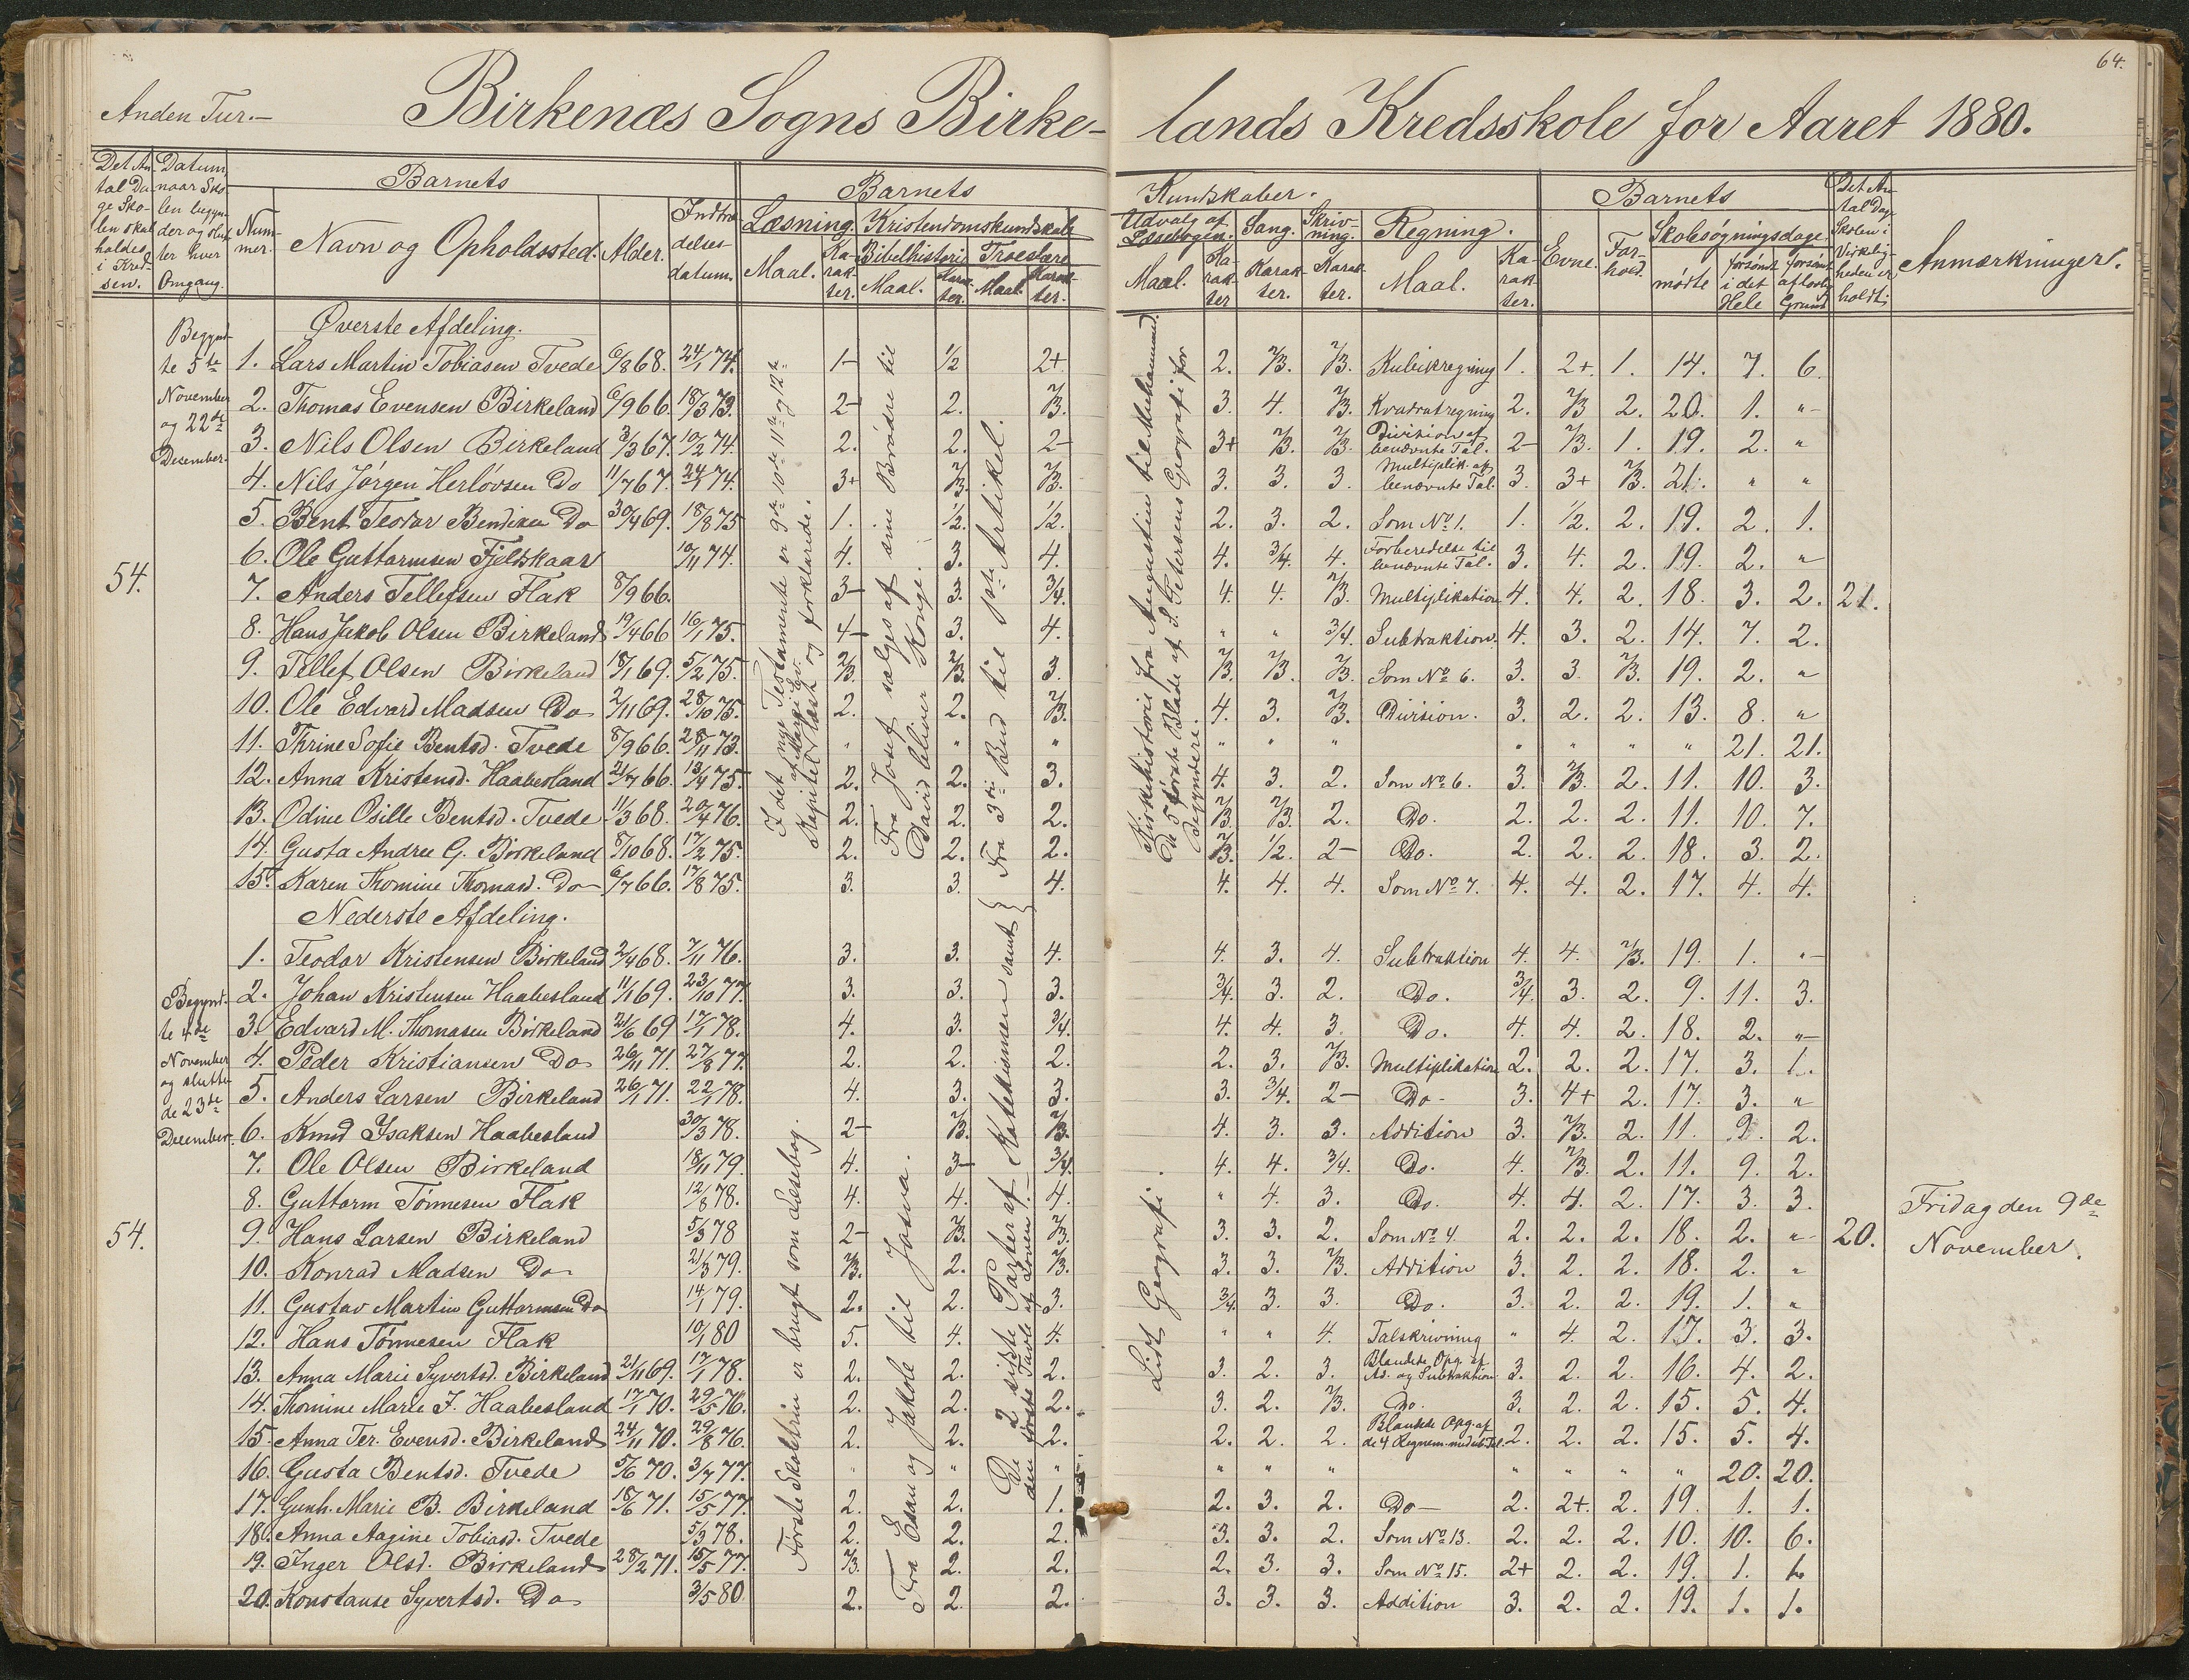 64.
Anden Tur.—
Birkenæs Sogns Birke- lands Kredsskole for Aaret 1880.
Det An- tal Da- ge Sko- len skal holdes i Kred- sen.
Datum, naar Sko- len begyn- der og slut- ter hver Omgang.
Barnets
Num- mer.
Navn og Opholdssted.
Alder.
Indtræ- delses- datum.
Barnets
Kundskaber.
Læsning.
Maal.
Ka- rak- ter.
Kristendomskundskab
Bibelhistorie
Maal.
Karak- ter.
Troeslære
Maal.
Karak- ter.
Udvalg af Læsebogen.
Maal.
Ka- rak- ter
Sang.
Karak- ter.
Skriv- ning.
Karak- ter.
Regning.
Maal.
Ka- rak- ter.
Barnets
Evne.
For- hold.
Skolesøgningsdage.
mødte
forsømt i det Hele
forsømt af lovlig Grund
Det An- tal Dage Skolen i Virkelig- heden er holdt.
Anmærkninger.
Øverste Afdeling.
Begynd- te 5te November og 22de Desember.
54.
I det nye Testamente er 9de 10de 11te og 12te Kapitel af Marci Ev. læst og forklarede.
Fra Josef sælges af sine Brødre til David bliver Konge.
Fra 3die Bud til 1ste Artikel.
Kirkehistorie fra Augustin til Muhammed.
De 5 første Blade af S. Petersens Geografi for Begyndere.
1. Lars Martin Tobiasen Tvede 6/8 68. 24/1 74. 1- 1/2 2+ 2. 2/3. 2/3. Kubikregning 1. 2+. 1. 14. 7. 6.
2. Thomas Evensen Birkeland 6/9 66. 18/3 73. 2- 2. 2/3. 3. 4. 2/3. Kvadratregning 2. 2/3 2. 20. 1. "
3. Nils Olsen Birkeland 3/3 67. 10/2 74. 2. 2. 2- 3+ 2/3. 2/3. Division af benævnte Tal. 2- 2/3. 1. 19. 2. "
4. Nils Jørgen Herløvsen Do 11/7 67. 24/1 74. 3+ 2/3. 2/3. 3. 3. 3. Multiplik. af benævnte Tal. 3. 3+ 2/3. 21. " "
5. Bent Teodor Bendiksen Do 30/4 69. 18/8 75 1. 1/2. 1/2. 2. 3. 2. Som No 1. 1. 1/2. 2. 19. 2. 1.
6. Ole Guttormsen Fjeldskaar 10/11 74. 4. 3. 4. 4. 3/4. 4. Forberedelse til benævnte Tal. 3. 4. 2. 19. 2. "
7. Anders Tellefsen Flak 8/9 66. 3- 3. 3/4. 4. 4. 2/3. Multiplikation 4. 4. 2. 18. 3. 2. 21.
8. Hans Jakob Olsen Birkeland 19/4 66 16/1 75. 4- 3. 4. " " 3/4. Subtraktion. 4. 3. 2. 14. 7. 2.
9. Tellef Olsen Birkeland 18/1 69. 5/2 75. 2/3. 2/3. 3. 2/3. 2/3. 2/3. Som No 6. 3. 3 2/3. 19. 2. "
10. Ole Edvard Madsen Do 2/11 69. 28/10 75. 2. 2. 2/3. 4. 3. 2/3. Division. 3. 2. 2. 13. 8. "
11. Thrine Sofie Bentsd. Tvede 8/9 66. 28/11 73. " " " " " " " " " " 21. 21.
12. Anna Kristensd. Haabesland 21/7 66. 13/4 75. 2. 2. 3. 4. 3. 2. Som No 6. 3. 2/3. 2. 11. 10. 3.
13. Odine Osille Bentsd. Tvede 11/3 68. 20/4 76. 2. 2. 2. 2/3. 2/3. 2. Do. 2. 2. 2. 11. 10. 7.
14. Gusta Andree G. Birkeland 8/10 68. 17/2 75. 2. 2. 2. 2/3. 1/2. 2- Do. 2. 2. 2. 18. 3. 2.
15. Karen Thomine Thomasd. Do 6/7 66. 17/8 75. 3. 3. 4. 4. 4. 4. Som No 7. 4. 4. 2. 17. 4. 4.
Nederste Afdeling.
Begynd- te 4de November og slutte- de 23de December.
54.
Første Skoletrin er brugt som Læsebog.
Fra Esau og Jakob til Josva.
De 2 sidste Parter af Katekismen samt den første Tavle af Loven.
Lidt Geografi.
1. Teodor Kristensen Birkeland 2/4 68. 7/11 76. 3. 3. 4. 4. 3. 4. Subtraktion 4. 4. 2/3. 19. 1. "
2. Johan Kristensen Haabesland 11/1 69. 23/10 77. 3. 3. 3. 3/4. 3. 2. Do. 3/4. 3. 2. 9. 11. 3.
3. Edvard M. Thomasen Birkeland 21/6 69 17/1 78. 4. 3. 3/4. 4. 4. 3. Do. 4. 4. 2. 18. 2. "
4. Peder Kristiansen Do 26/11 71. 27/8 77. 2. 2. 2. 2. 3. 2/3. Multiplikation 2. 2. 2. 17. 3. 1.
5. Anders Larsen Birkeland 26/1 71. 22/1 78. 4. 3. 3. 3. 3/4. 2- Do - 3. 4+ 2. 17. 3. "
6. Knud Isaksen Haabesland 30/3 78. 2- 2/3. 2/3. 4. 3. 3. Addition 3. 2/3. 2. 11. 9. 2.
7. Ole Olsen Birkeland 18/11 79. 4. 3- 3/4. 4. 4. 3/4. Do. 4. 2/3. 2. 11. 9. 2.
8. Guttorm Tønnesen Flak 12/8 78. 4. 4. 4. " 4. 3. Do. 4. 4. 2. 17. 3. 3.
9. Hans Larsen Birkeland 5/3 78 2- 2/3. 2/3. 3. 3. 2. Som No 4. 2. 2. 2. 18. 2. " 20. Fridag den 9de November.
10. Konrad Madsen Do 21/3 79. 2/3. 2. 2/3. 3. 3. 2/3. Addition 3. 2. 2. 18. 2. "
11. Gustav Martin Guttormsen Do 14/1 79. 2. 2. 3. 3/4. 3. 3. Do. 3. 2. 2. 19. 1. "
12. Hans Tønnesen Flak 10/1 80 5. 4. 4. " " 4. Talskrivning " 4. 2. 17. 3. 3.
13. Anna Marie Syvertsd. Birkeland 21/11 69. 17/1 78. 2. 2. 2. 3. 2. 3. Blandede Opg. af Ad. og Subtraktion 3. 2. 2. 16. 4. 2.
14. Thomine Marie J. Haabesland 17/1 70. 29/5 76. 2. 2. 2. 3. 2. 2/3. Do. 3. 2. 2. 15. 5. 4.
15. Anna Ter. Evensd. Birkeland 24/11 70. 29/8 76. 2. 2. 2. 2. 2. 2. Blandede Opg. af de 4 Regnem. med ub. Tal. 2. 2. 2. 15. 5. 4.
16. Gusta Bentsd. Tvede 5/6 70. 3/7 77. " " " " " " " " " " 20. 20.
17. Gunh. Marie B. Birkeland 18/6 71. 15/5 77. 2. 2. 1. 2. 3. 2. Do - 2. 2+. 2. 19. 1. 1.
18. Anna Aagine Tobiasd. Tvede 5/3 78. 2. 2. 2. 3. 3. 2. Som No 13. 2. 2. 2. 10. 10. 6.
19. Inger Olsd. Birkeland 28/2 71. 15/5 77. 2/3. 2. 2. 2. 3. 3. Som No 15. 2+ 2. 2. 19. 1.
20. Konstanse Syvertsd. Do 3/5 80. 2. 2. 2. 3. 3. 3. Addition 3. 2. 2. 19. 1. 1.